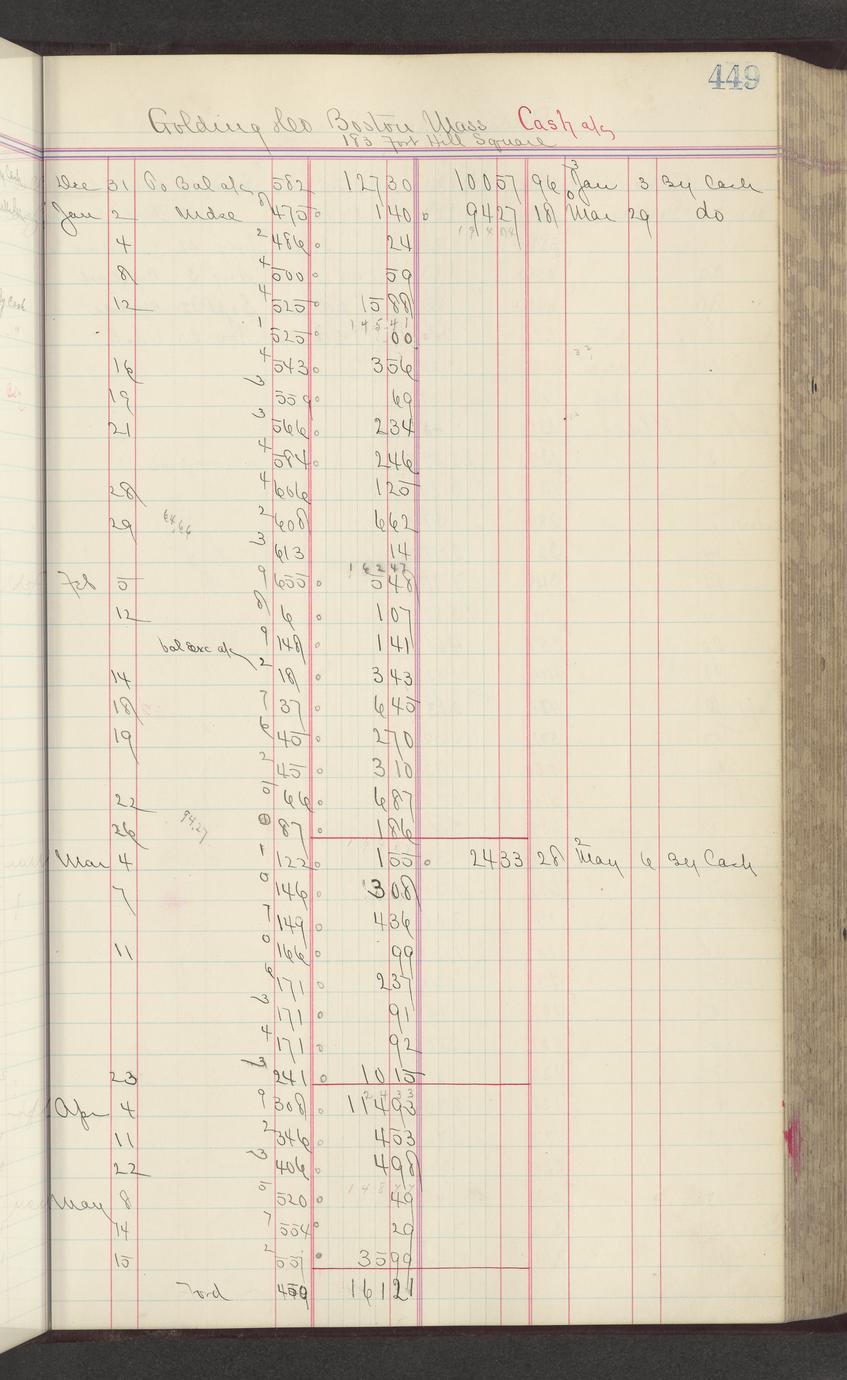 449
Golding & Co Boston Mass Cash a/c
183 Fort Hill Square
Dec 31 To Bal a/c 582 127 30 100 57 96 3 Jan 3 By Cash
Jan 2 Mdse 8 475 1 40 94 27 18 Mar 29 do
4 2 486 24
8 4 500 59
12 4 525 15 88
145 41
1 525 00
16 4 543 3 56
19 3 559 69
21 3 566 2 34
4 584 2 46
28 4 606 1 25
29 64.66 2 608 6 62
3 613 14
162 47
Feb 5 9 655 5 48
12 8 6 1 07
bal Exc a/c 9 148 1 41
14 2 18 3 43
18 7 37 6 45
19 6 45 2 70
2 45 3 10
22 5 66 6 87
26 94.27 87 1 86
Mar 4 1 122 1 55 24 33 28 2 May 6 By Cash
7 0 146 3 08
7 149 4 36
11 0 166 99
6 171 2 37
3 171 91
4 171 92
23 3 241 10 15
24 33
Apr 4 9 308 114 93
11 2 346 4 53
22 3 406 4 98
May 8 5 520 49
14 7 554 29
15 2 557 35 99
Ford 459 161 21